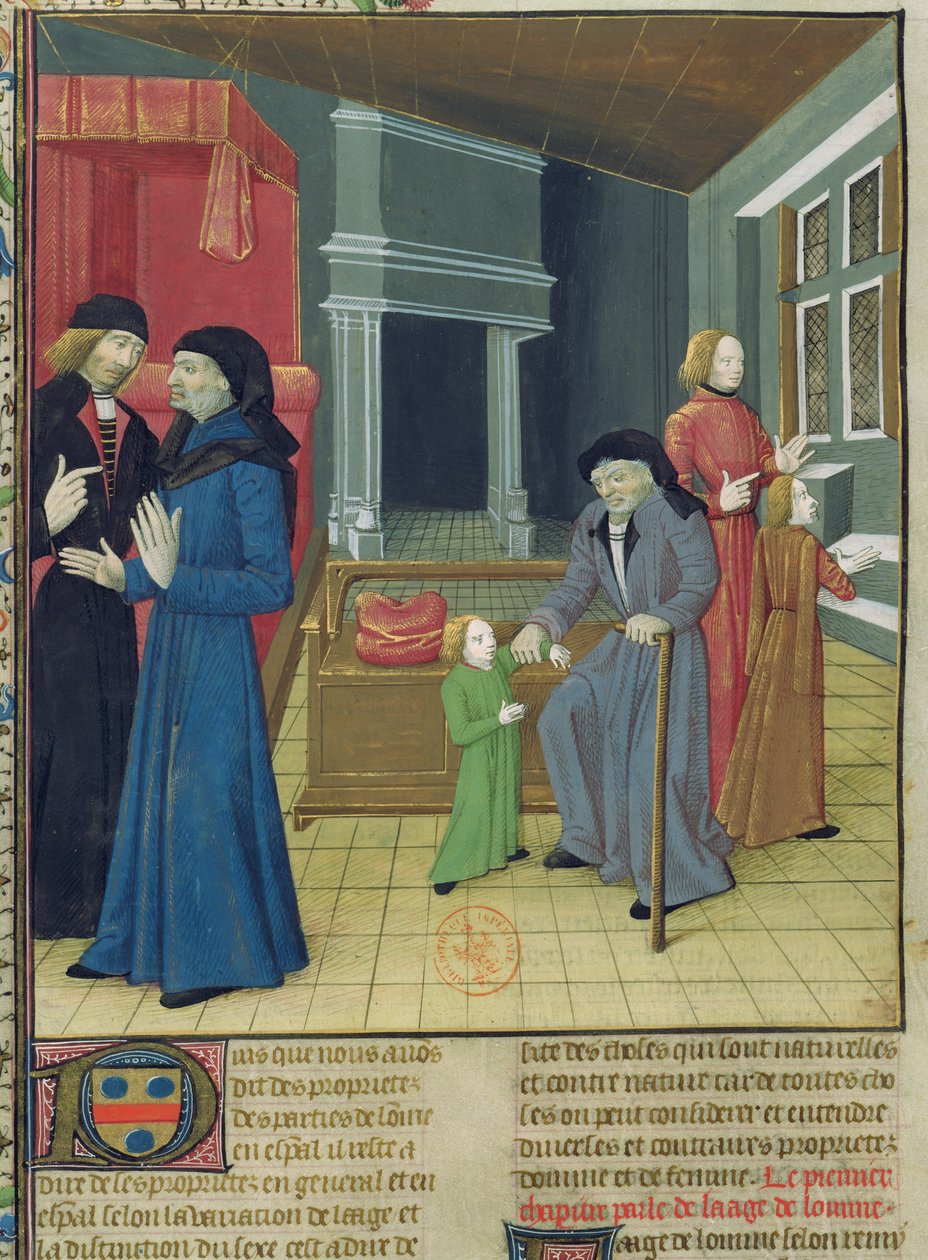 BIBLIOTHEQUE IMPERIALE
Puis que nous auōs
dit des proprietez
des parties de lōme
en esp̄al il reste a
dire de ses proprietez en general et en
esp̄al selon la variation de laage et
la distinction du sexe cest a dire de
site des choses qui sont naturelles
et contre nature car de toutes cho
ses on peut considerer et entendre
diuerses et contraires proprietez
domme et de femme. Le premier
chapitre parle de laage de lomme.
Laage de lomme selon remy